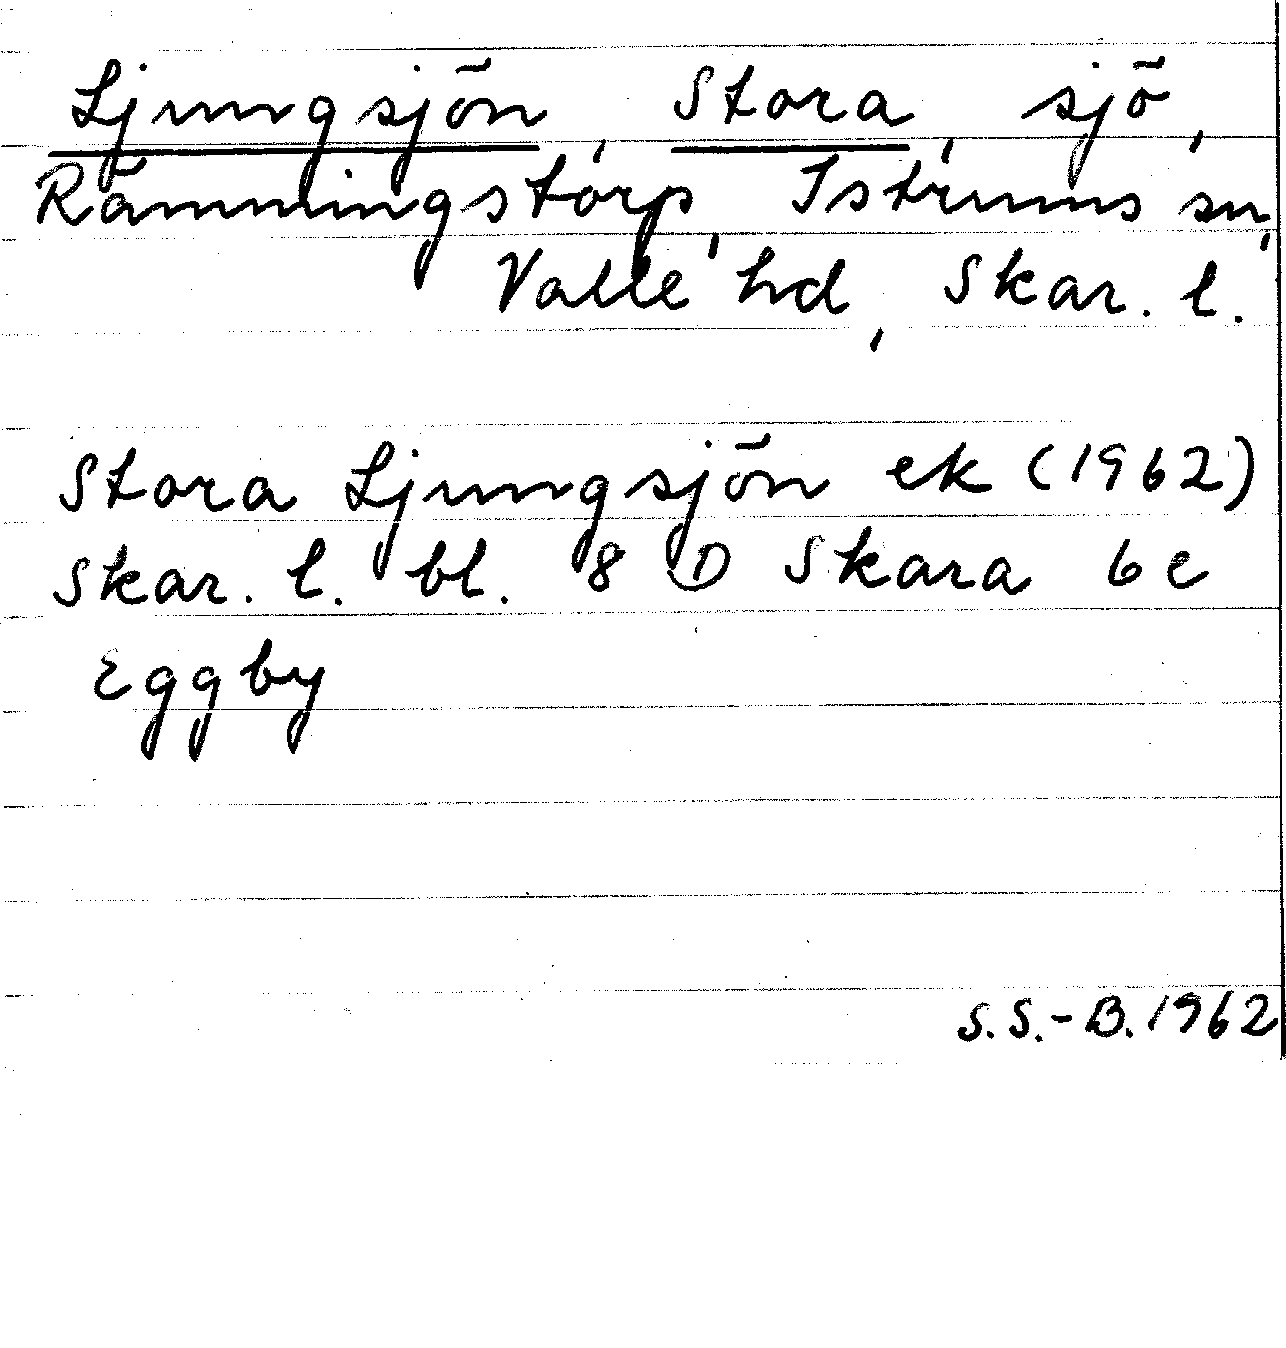 Ljungsjön, Stora, sjö,
Rämmningstorp, Istrums sn,
Valle hd, Skar. l.
Stora Ljungsjön ek (1962)
Skar. l. bl. 8 D Skara 6 e
Eggby
S.S.-B. 1962